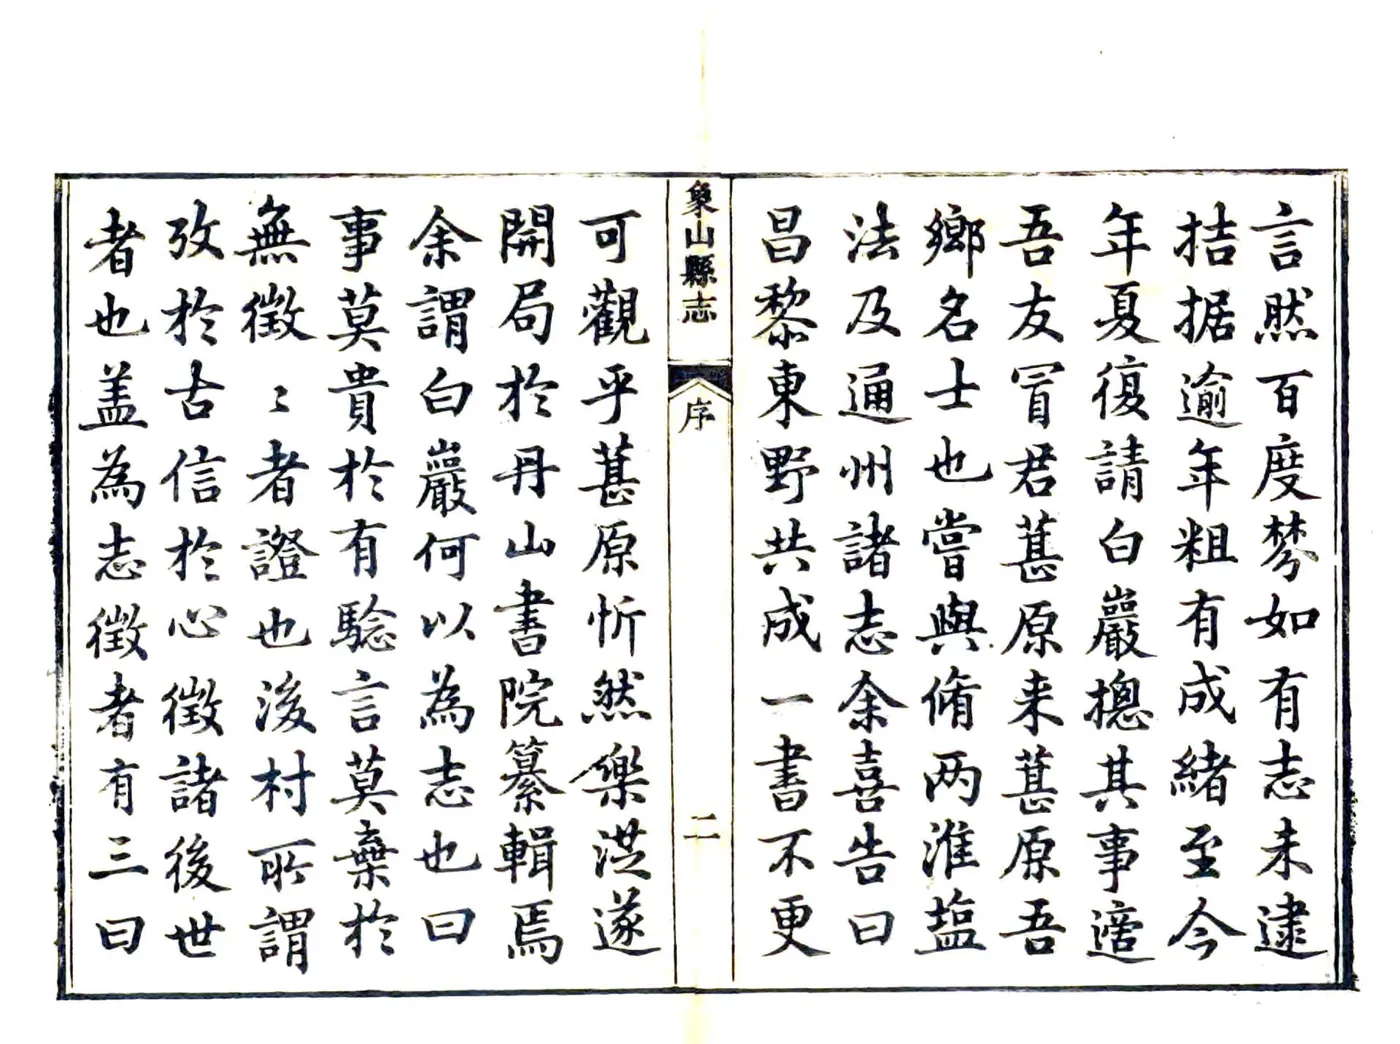 言然百度棼如有志未逮
拮据逾年粗有成緒至今
年夏復請白巖摠其事適
吾友冒君葚原来葚原吾
鄉名士也嘗與脩两淮塩
法及通州諸志余喜告曰
昌黎東野共成一書不更
象山縣志
序
二
可觀乎葚原忻然樂泆遂
開局於丹山書院纂輯焉
余謂白巖何以為志也曰
事莫貴於有騐言莫棄於
無徵〻者證也後村所謂
攷於古信於心徵諸後世
者也盖為志徵者有三曰